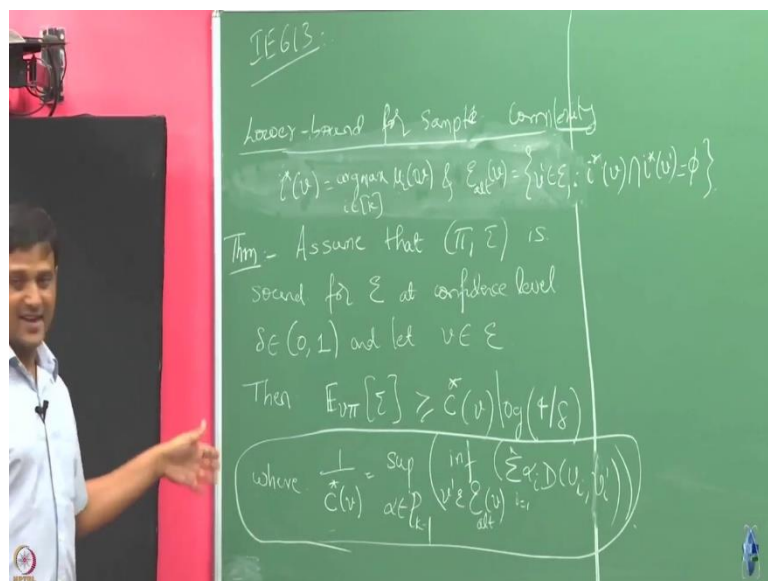 IE613:
Lower-bound for Sample Complexity
i*(v) = argmax_{i∈[K]} μ_i(v) & ℰ_alt(v) = {v'∈ℰ, : i*(v) ∩ i*(v') = φ}
Thm:- Assume that (π, τ) is
sound for ℰ at confidence level
δ∈(0,1) and let v∈ ℰ
Then 𝔼_{vπ}[τ] ≥ c*(v) log(4/δ)
where 1/c*(v) = sup_{α∈P_{k-1}} ( inf_{v'∈ℰ_alt(v)} ( Σ_{i=1} α_i D(v_i, v_i') ) )
NPTEL